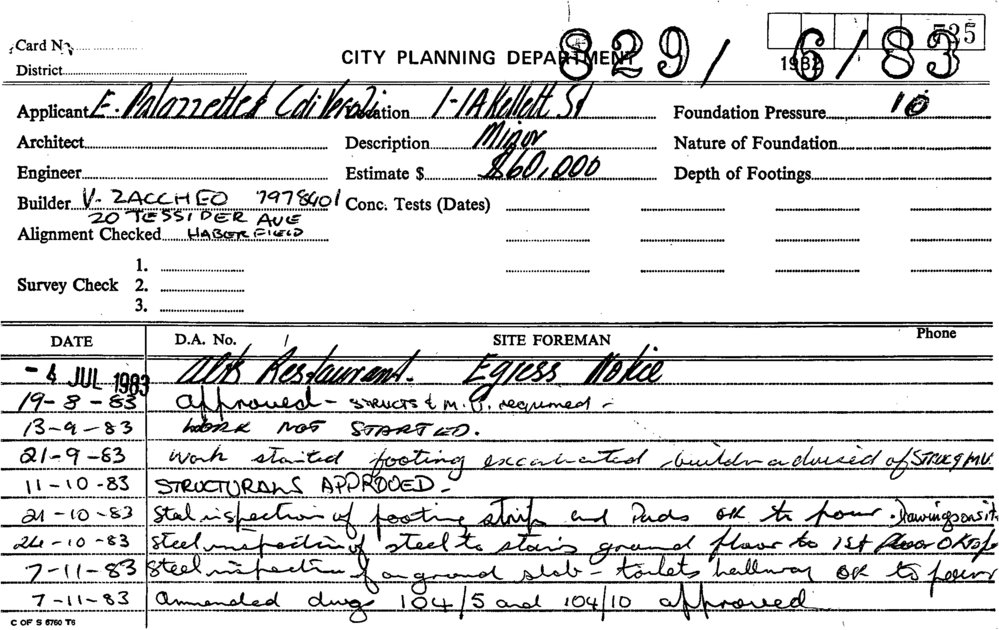 Card No
535
CITY PLANNING DEPARTMENT 829/6/83
District
1982
Applicant E. Palazzetti & C di Location 1-1A Kellett St Foundation Pressure 10
Architect Description Minor Nature of Foundation
Engineer Estimate $ $60,000 Depth of Footings
Builder V. ZACCHEO 7978401 Conc. Tests (Dates)
20 TESSIDER AVE
Alignment Checked HABERFIELD
1.
Survey Check 2.
3.
DATE D.A. No. SITE FOREMAN Phone
- 4 JUL 1983 Alts Restaurant. Egress Notice
19-8-83 approved - STRUCTS & M.V. required -
13-9-83 WORK NOT STARTED.
21-9-83 Work started footing excavated builder advised of STRUC & M.V.
11-10-83 STRUCTURALS APPROVED -
21-10-83 Steel inspection of footing strip and Pads OK to pour. Drawings on sit.
24-10-83 Steel inspection of steel to stairs ground floor to 1st floor OK
7-11-83 Steel inspection of on ground slab - toilets hallway OK to pour
7-11-83 Ammended dwgs 104/5 and 104/10 approved
C OF S 6760 T6